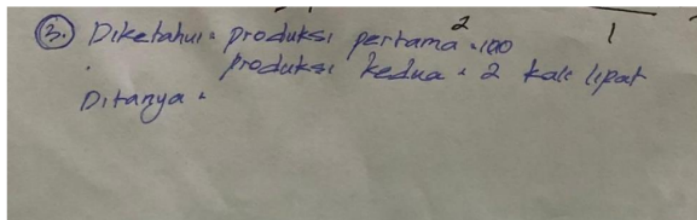 2 1
3. Diketahui = produksi pertama = 100
produksi kedua = 2 kali lipat
Ditanya =